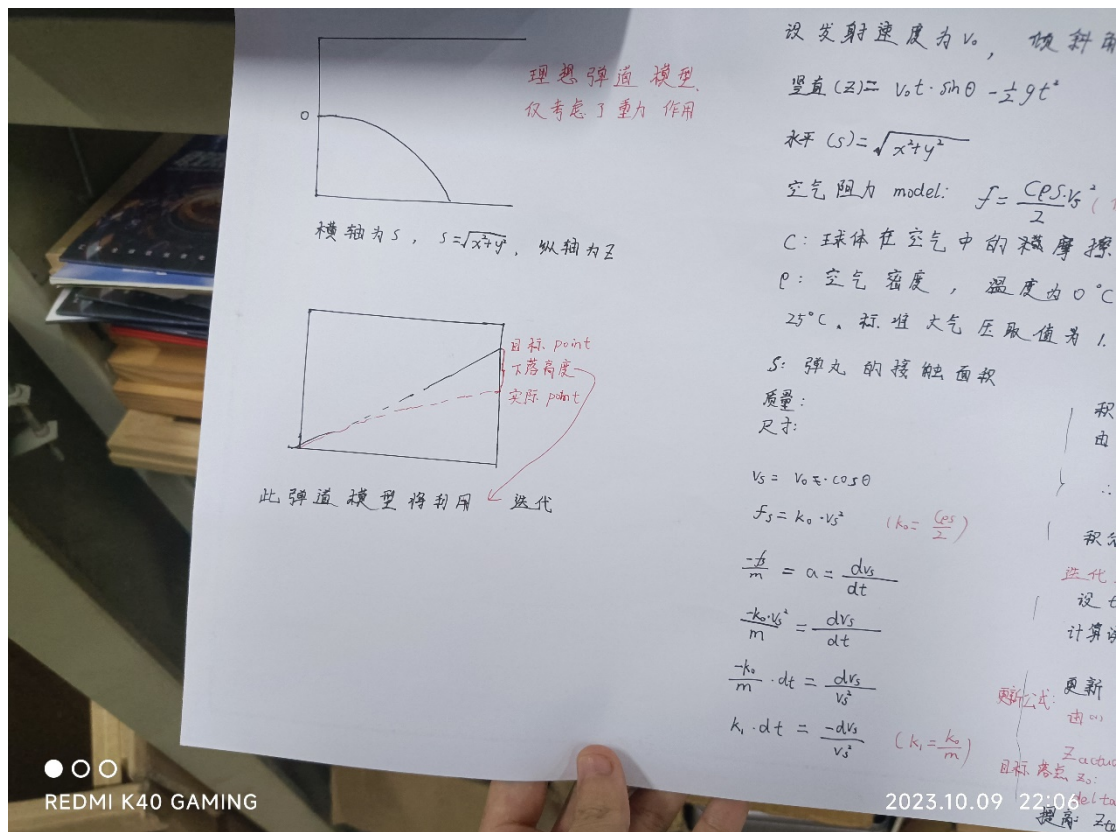 理想弹道模型.
仅考虑了重力作用
O
横轴为S, S=√x²+y², 纵轴为Z
目标point
下落高度
实际point
此弹道模型将利用 迭代
设发射速度为V₀, 倾斜
竖直(Z)= V₀t·sinθ - ½gt²
水平(S)=√x²+y²
空气阻力 model: f = CρS·Vs²/2
C: 球体在空气中的 摩擦
ρ: 空气密度, 温度为0°C
25°C. 标准大气压取值为1.
S: 弹丸的接触面积
质量:
尺寸:
Vs = V₀·cosθ
fs = k₀·Vs² (k₀= CρS/2)
-fs/m = a = dVs/dt
-k₀·Vs²/m = dVs/dt
-k₀/m ·dt = dVs/Vs²
k₁·dt = -dVs/Vs² (k₁=k₀/m)
积
由
∴
积分
迭代
设t
计算
更新公式: 更新
由(1)
Zactua
目标落点Z₀:
delta
提高:
REDMI K40 GAMING
2023.10.09 22:06